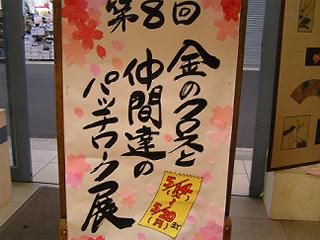 第8回
金のクロスと
仲間達の
パッチワーク展
5/14
(火)
~
5/20
(月)まで